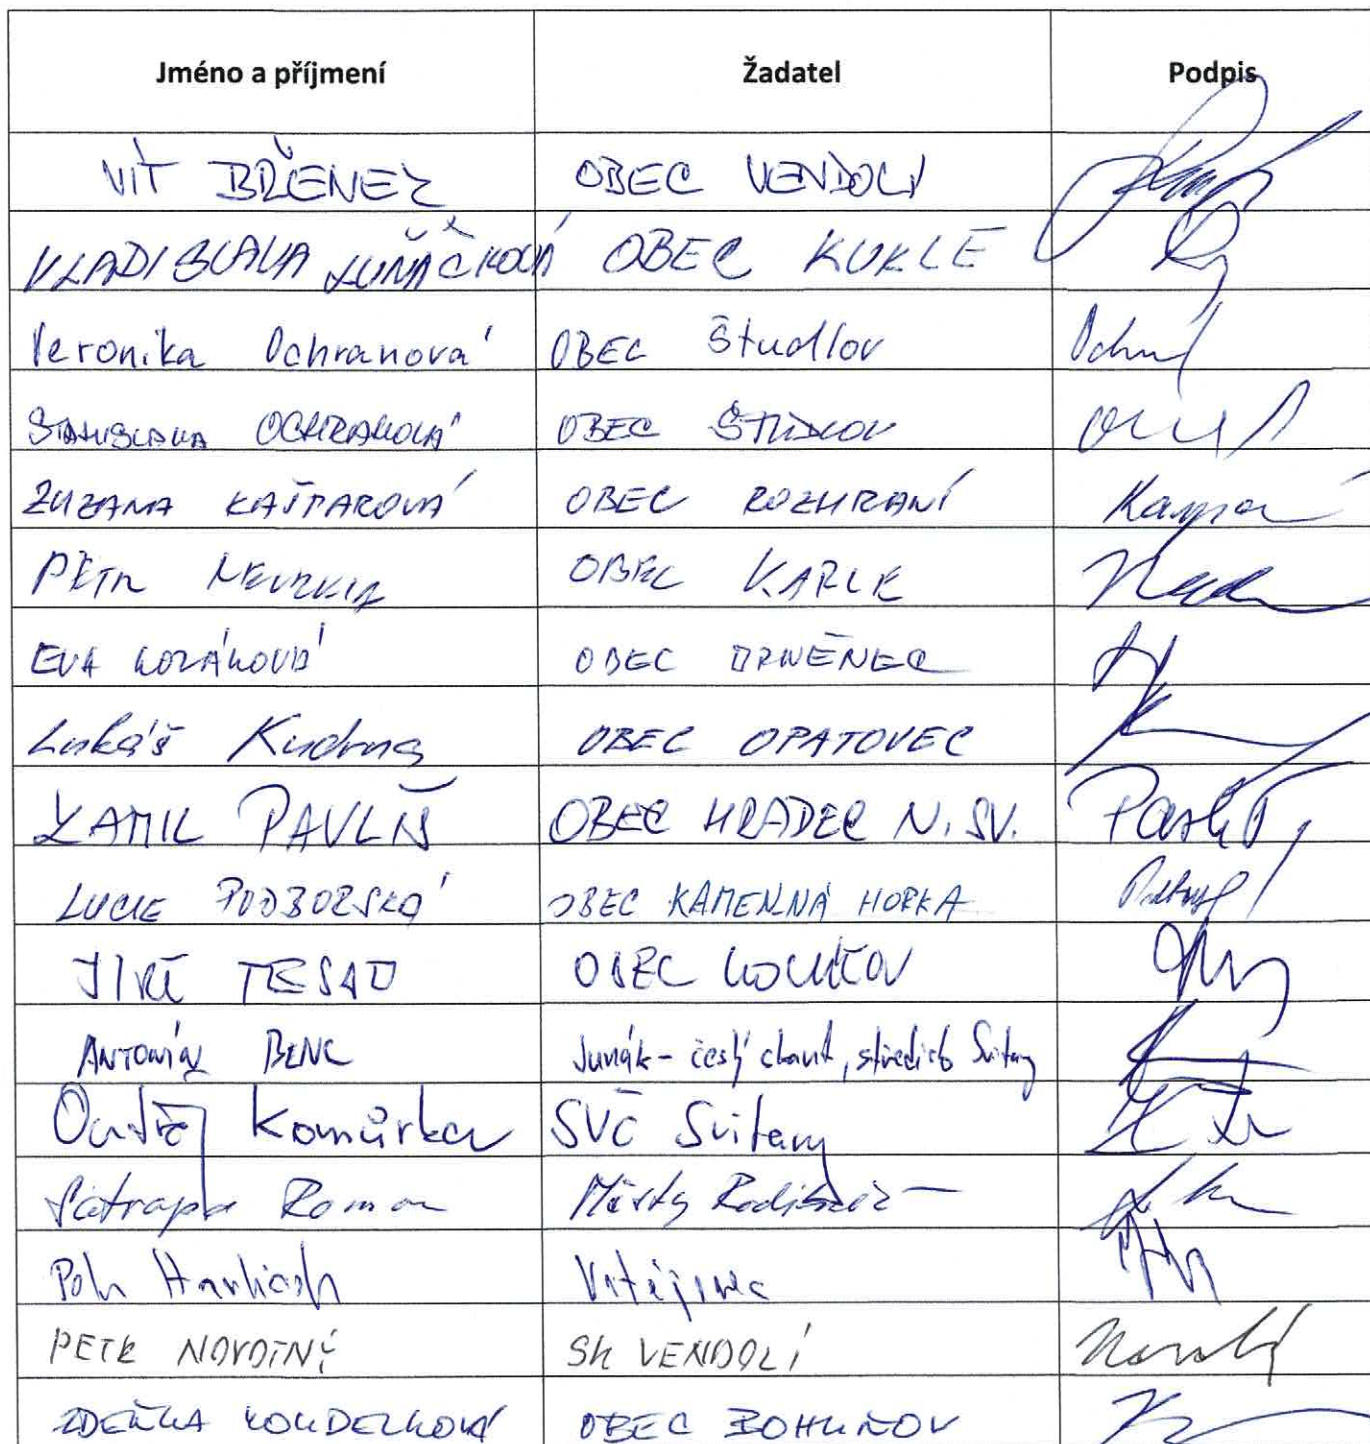 Jméno a příjmení Žadatel Podpis
VÍT BRŽENEZ OBEC VENDOLÍ
VLADISLAVA LUŇÁČKOVÁ OBEC KUKLE
Veronika Ochranová OBEC Študlov
STANISLAVA OCHRANOVÁ OBEC ŠTUDLOV
ZUZANA KAŠPAROVÁ OBEC ROZHRANÍ
PETR OBEC KARLE
EVA KOZÁKOVÁ OBEC BRNĚNEC
Lukáš Kudrna OBEC OPATOVEC
KAMIL PAVLIŠ OBEC HRADEC N. SV.
LUCIE PODBORSKÁ OBEC KAMENNÁ HORKA
JIŘÍ TESAŘ OBEC
ANTONÍN BENC Junák - český skaut, středisko Svitavy
Ondřej Komůrka SVČ Svitavy
Satrapa Roman Městys Radiměř
Havlíček Vítějeves
PETR NOVOTNÝ SK VENDOLÍ
ZDEŇKA KOUDELKOVÁ OBEC BOHUŇOV